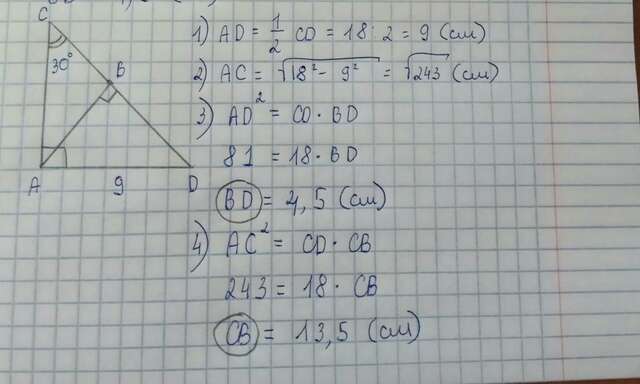 C
30°
B
A
9
D
1) AD = 1/2 CD = 18 : 2 = 9 (см)
2) AC = √18² - 9² = √243 (см)
3) AD² = CD · BD
81 = 18 · BD
BD = 4,5 (см)
4) AC² = CD · CB
243 = 18 · CB
CB = 13,5 (см)